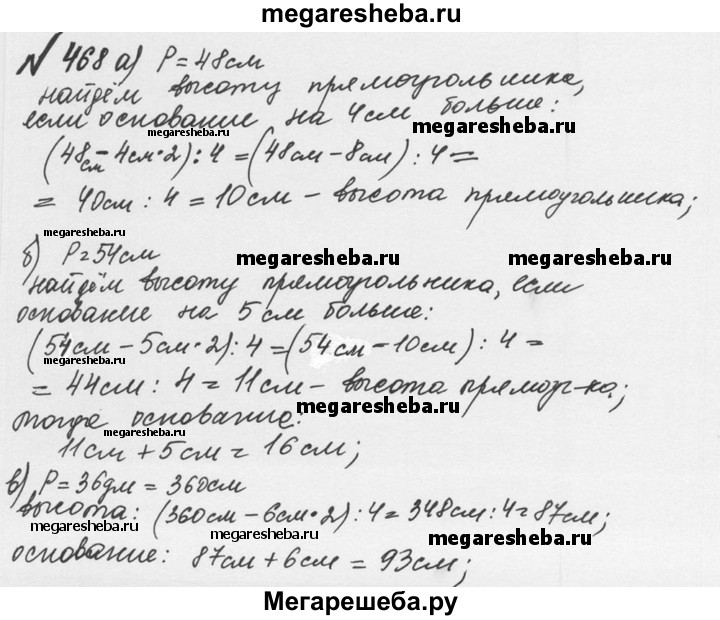 megaresheba.ru
№ 468 а) P = 48см
найдём высоту прямоугольника,
если основание на 4см больше:
megaresheba.ru megaresheba.ru
(48см - 4см·2) : 4 = (48см - 8см) : 4 =
= 40см : 4 = 10см - высота прямоугольника;
megaresheba.ru
б) P = 54см megaresheba.ru megaresheba.ru
найдём высоту прямоугольника, если
основание на 5см больше:
(54см - 5см·2) : 4 = (54см - 10см) : 4 =
= 44см : 4 = 11см - высота прямоуг-ка;
megaresheba.ru
тогда основание:
megaresheba.ru
11см + 5см = 16см;
в) P = 36дм = 360см
высота: (360см - 6см·2) : 4 = 348см : 4 = 87см;
megaresheba.ru megaresheba.ru megaresheba.ru
основание: 87см + 6см = 93см;
Мегарешеба.ру